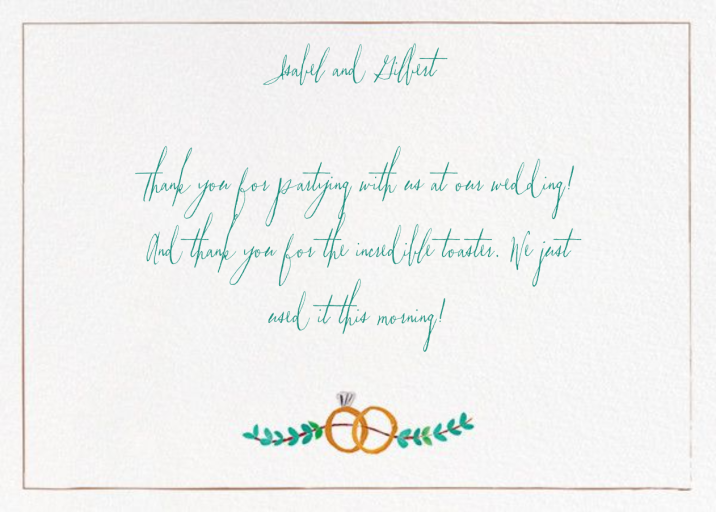 Isabel and Gilbert
Thank you for partying with us at our wedding!
And thank you for the incredible toaster. We just
used it this morning!